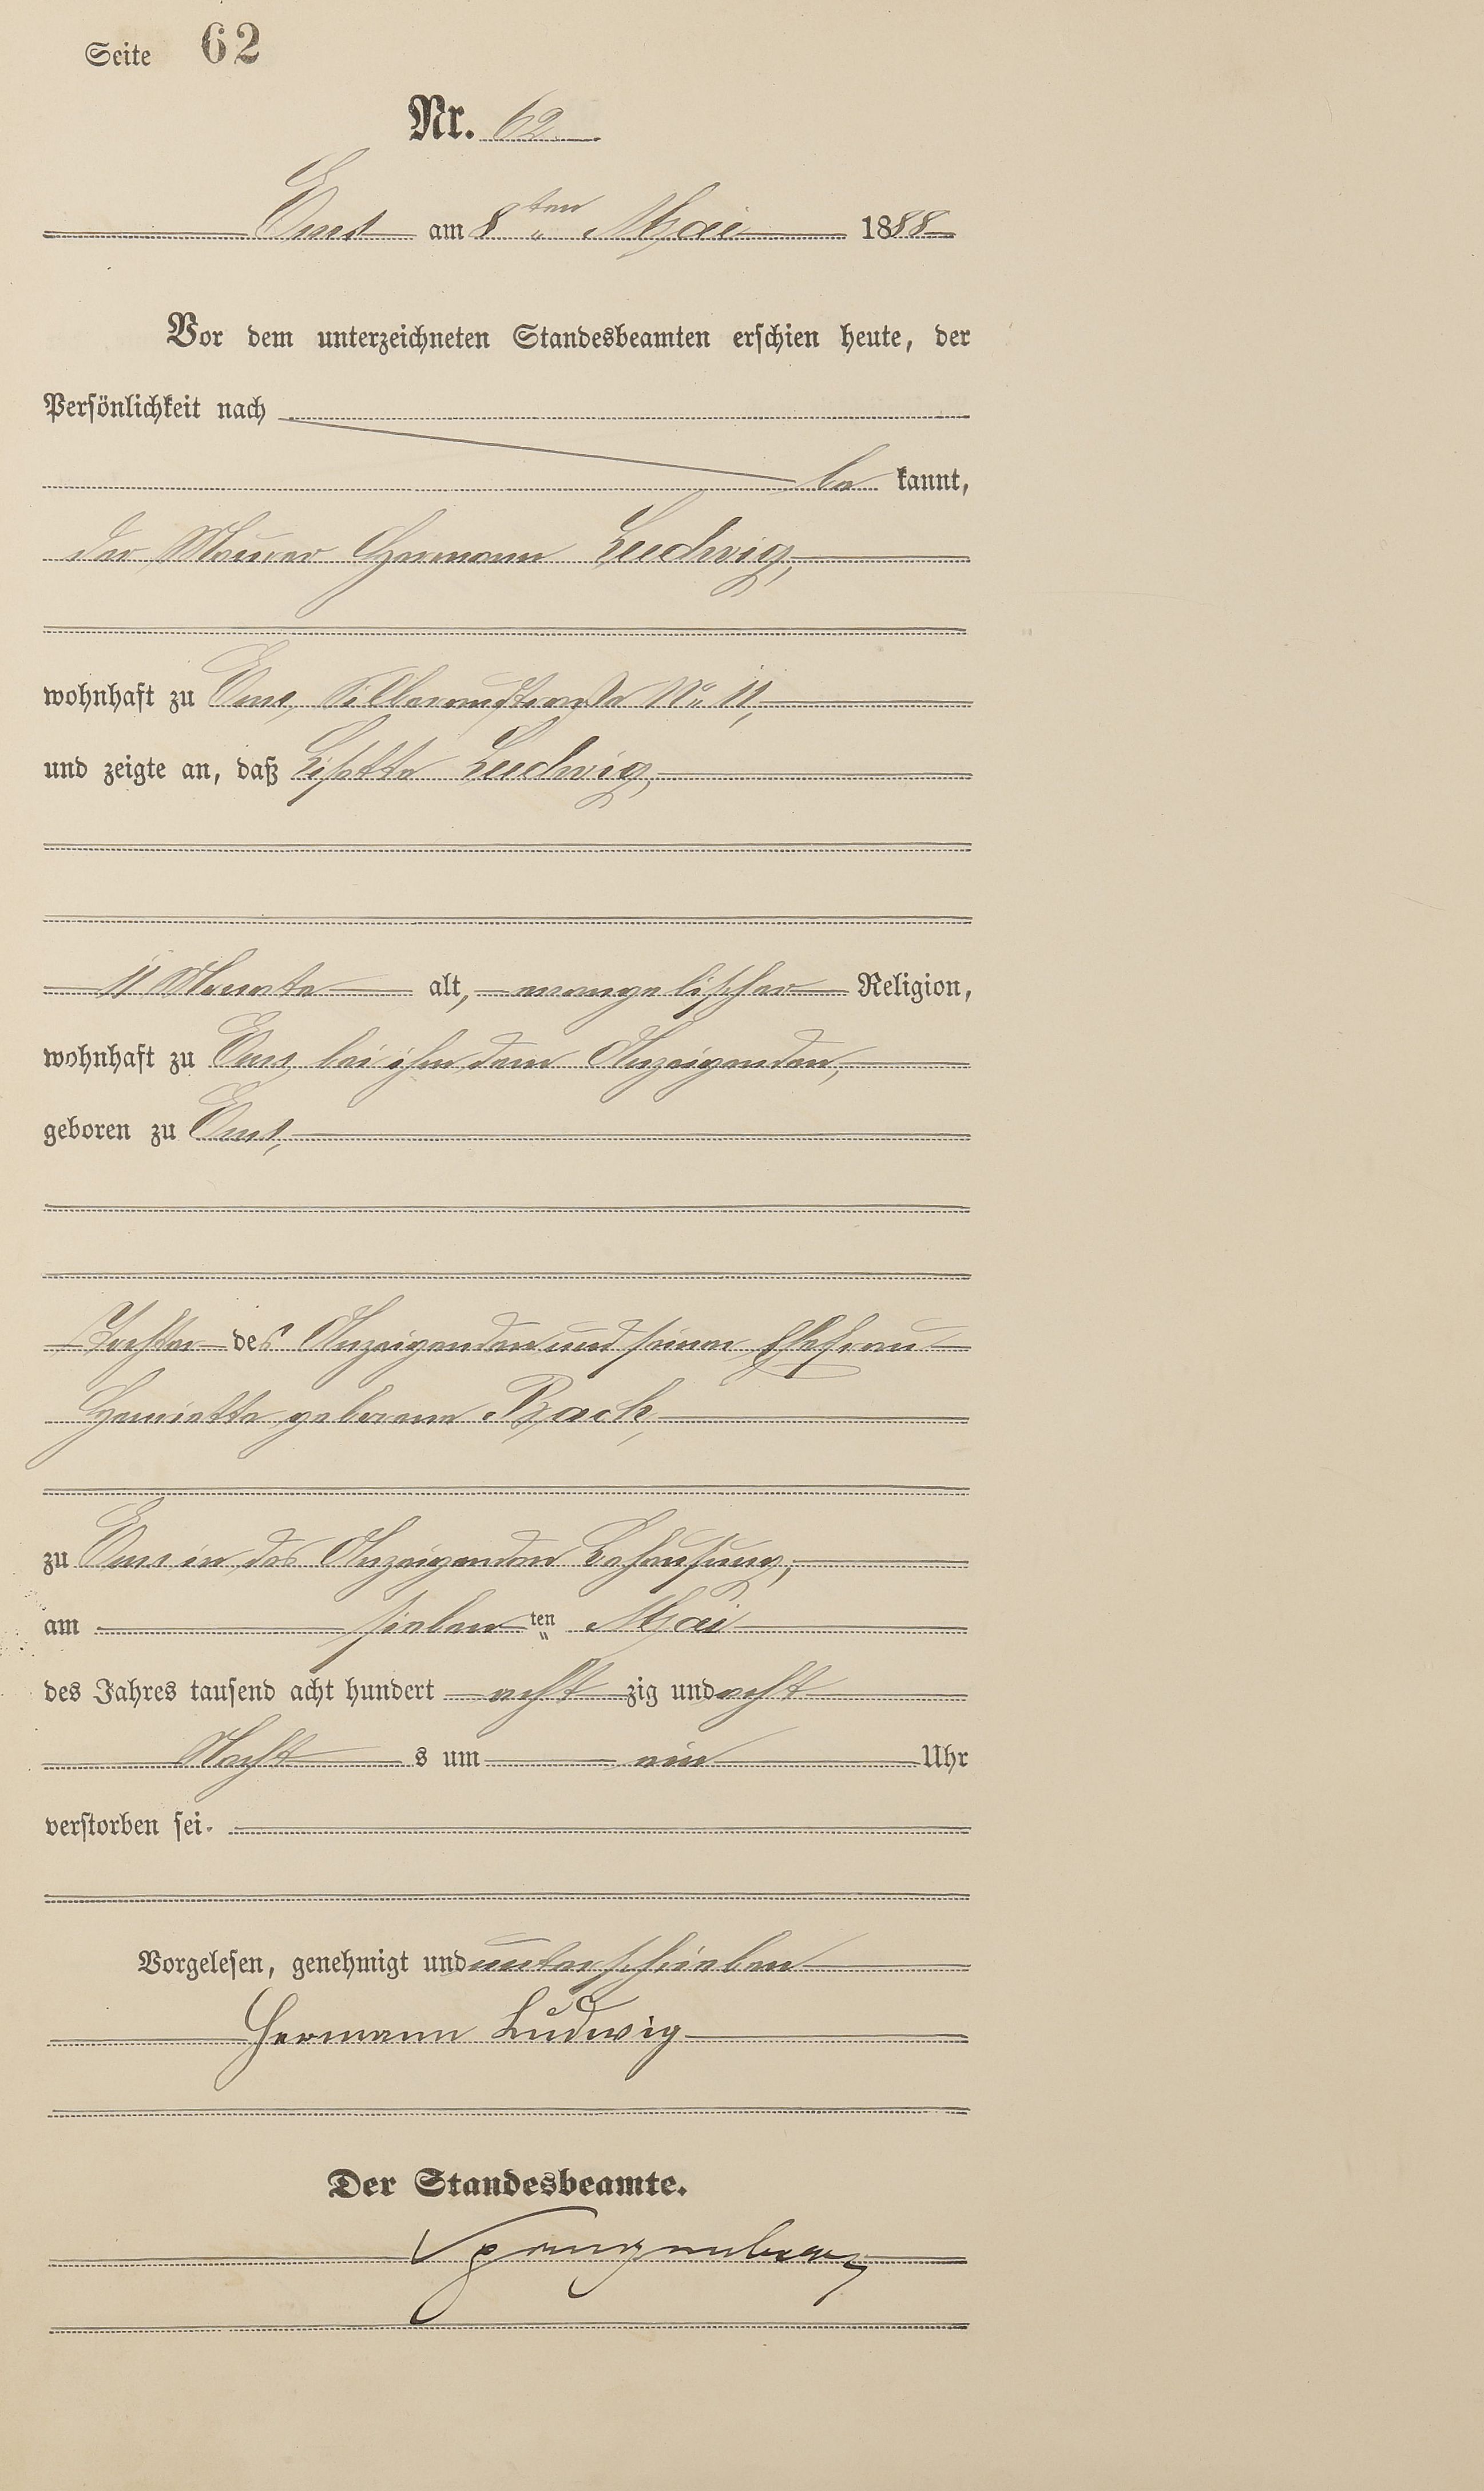 Seite 62
Nr. 62.
Ems am 8ten Mai 1888
Vor dem unterzeichneten Standesbeamten erschien heute, der
Persönlichkeit nach
be kannt,
der Maurer Hermann Ludwig,
wohnhaft zu Ems, Silberaustraße No 11,
und zeigte an, daß Lisette Ludwig,
11 Monate alt, evangelischer Religion,
wohnhaft zu Ems bei ihm, dem Anzeigenden,
geboren zu Ems,
Tochter des Anzeigenden und seiner Ehefrau
Henriette geborene Bach,
zu Ems in des Anzeigenden Behausung,
am sieben ten Mai
des Jahres tausend acht hundert acht zig und acht
Nacht s um ein Uhr
verstorben sei.
Vorgelesen, genehmigt und unterschrieben
Hermann Ludwig
Der Standesbeamte.
Spangenberg